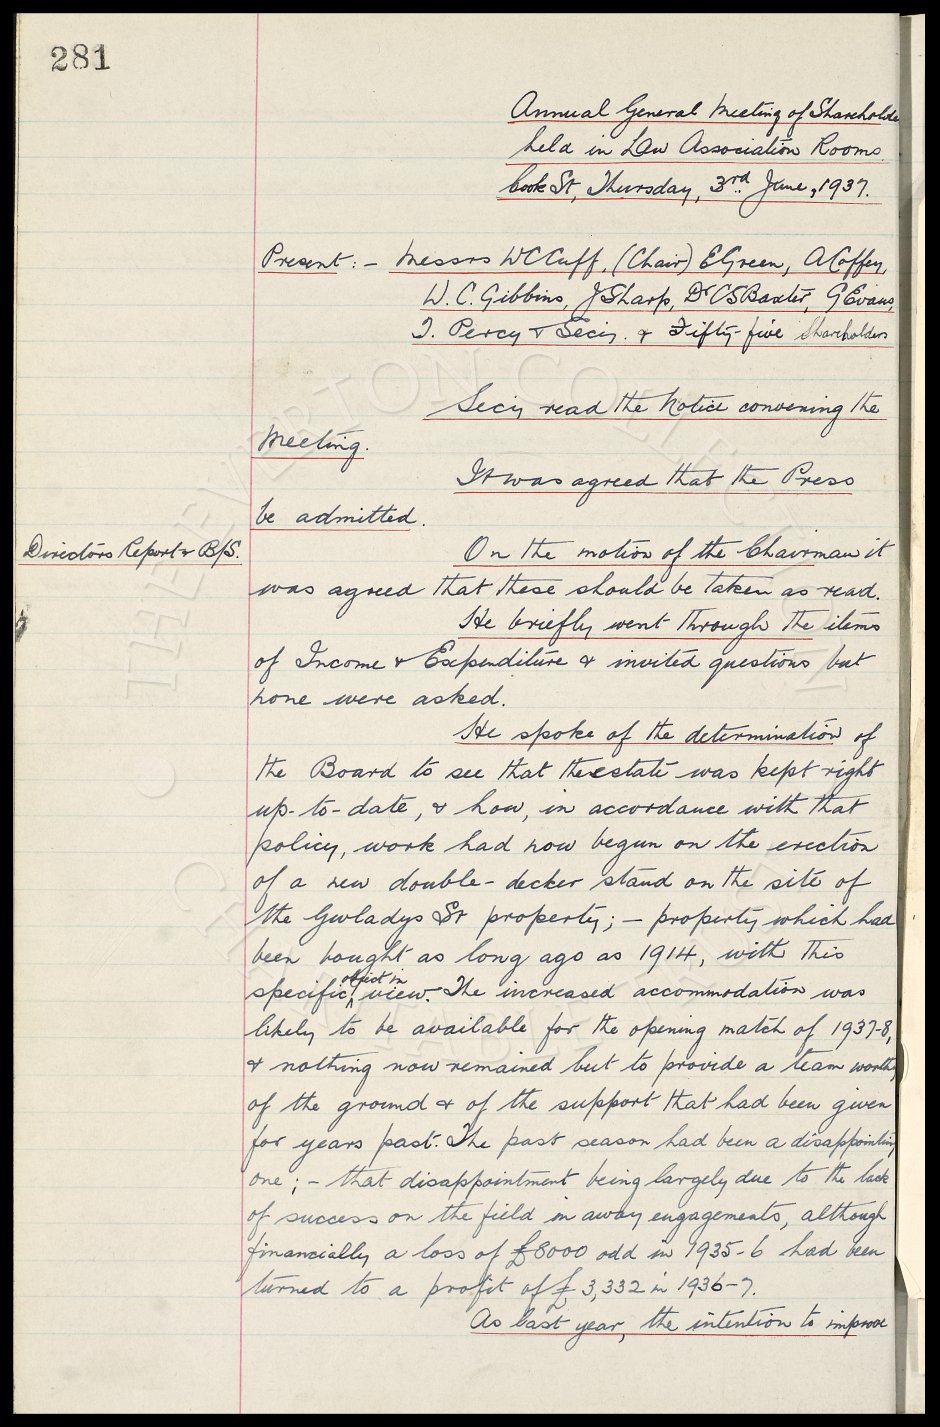 281
Annual General Meeting of Shareholde
held in Law Association Rooms.
Cook St, Thursday, 3rd June, 1937.
Present:- Messrs W C Cuff, (Chair) E Green, A Coffey,
W. C. Gibbins, J Sharp, Dr C S Baxter, G Evans,
T. Percy & Secy. & Fifty-five Shareholders
Secy read the Notice convening the
Meeting.
It was agreed that the Press
be admitted.
Directors Report & B/S.
On the motion of the Chairman it
was agreed that these should be taken as read.
He briefly went through the items
of Income & Expenditure & invited questions but
none were asked.
He spoke of the determination of
the Board to see that the estate was kept right
up-to-date, & how, in accordance with that
policy, work had now begun on the erection
of a new double-decker stand on the site of
the Gwladys St property; - property which had
been bought as long ago as 1914, with this
specific object in view. The increased accommodation was
likely to be available for the opening match of 1937-8,
& nothing now remained but to provide a team worthy
of the ground & of the support that had been given
for years past. The past season had been a disappointing
one; - that disappointment being largely due to the lack
of success on the field in away engagements, although
financially a loss of £8000 odd in 1935-6 had been
turned to a profit of £3,332 in 1936-7.
As last year, the intention to improve
THE EVERTON COLLECTION
CHARITABLE TRUST